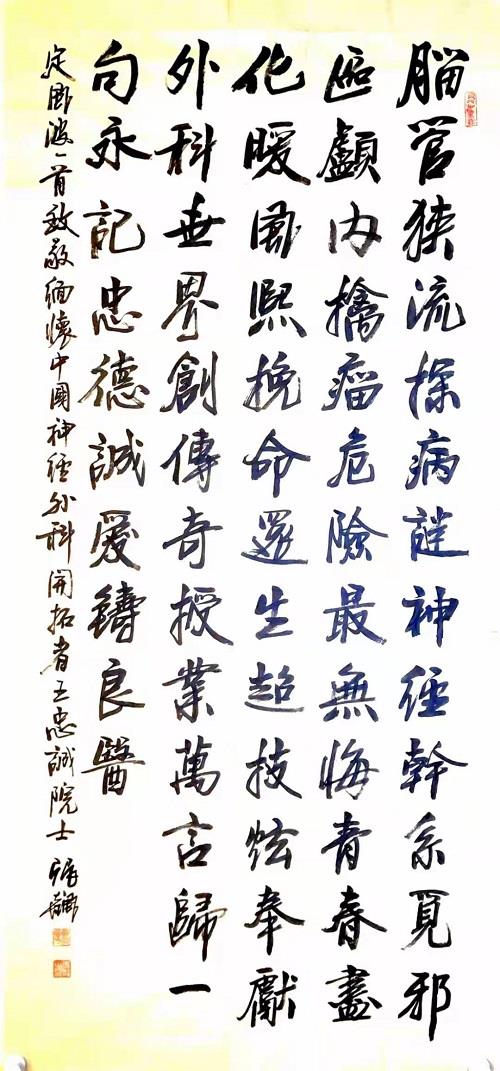 腦管狹流探病謎神經幹系覓邪
區顱內擒瘤危險最無悔青春盡
化暖風熙挽命還生超技炫奉獻
外科世界創傳奇授業萬言歸一
句永記忠德誠愛鑄良醫
定風波一首致敬緬懷中國神經外科開拓者王忠誠院士 張